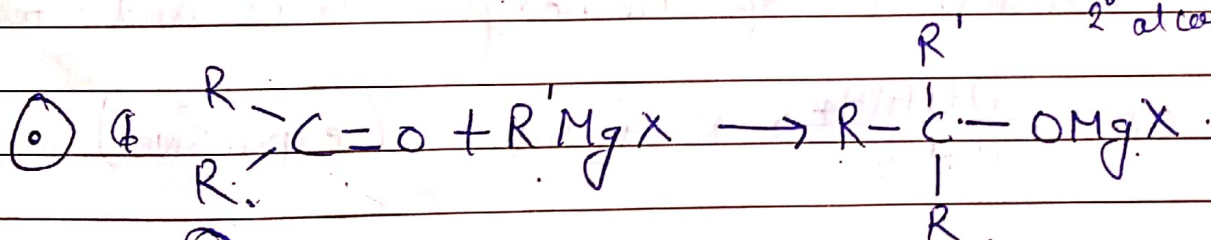 2° alco
R'
R
C=O + R'MgX ⟶ R–C–OMgX.
R
R